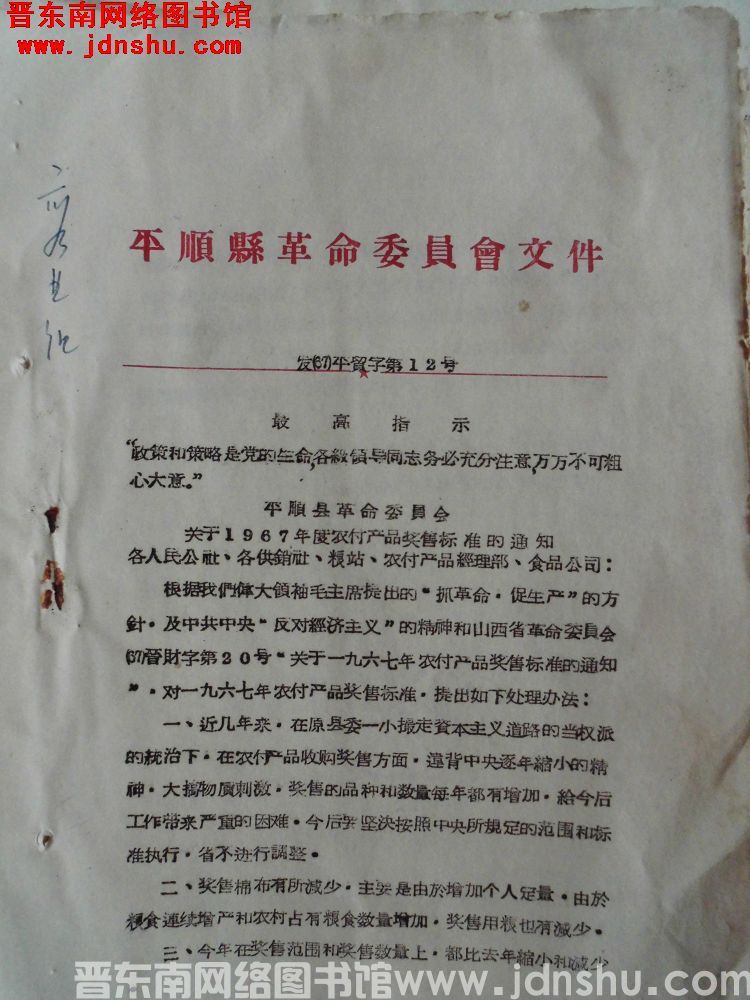 晋东南网络图书馆
www.jdnshu.com
平順縣革命委員會文件
发(67)平貿字第12号
最高指示
“政策和策略是党的生命,各級領导同志务必充分注意,万万不可粗
心大意。”
平順县革命委員会
关于1967年度农付产品奖售标准的通知
各人民公社、各供銷社、粮站、农付产品經理部、食品公司：
根据我們偉大領袖毛主席提出的“抓革命·促生产”的方
針·及中共中央“反对經济主义”的精神和山西省革命委員会
(67)晉財字第20号“关于一九六七年农付产品奖售标准的通知
”·对一九六七年农付产品奖售标准·提出如下处理办法：
一、近几年来·在原县委一小撮走資本主义道路的当权派
的統治下·在农付产品收购奖售方面·違背中央逐年縮小的精
神·大搞物质刺激·奖售的品种和数量每年都有增加·給今后
工作带来严重的困难·今后要坚决按照中央所規定的范围和标
准执行·省不进行調整·
二、奖售棉布有所减少·主要是由於增加个人定量·由於
粮食連续增产和农村占有粮食数量增加·奖售用粮也有减少。
三、今年在奖售范围和奖售数量上·都比去年縮小和减少
晋东南网络图书馆www.jdnshu.com